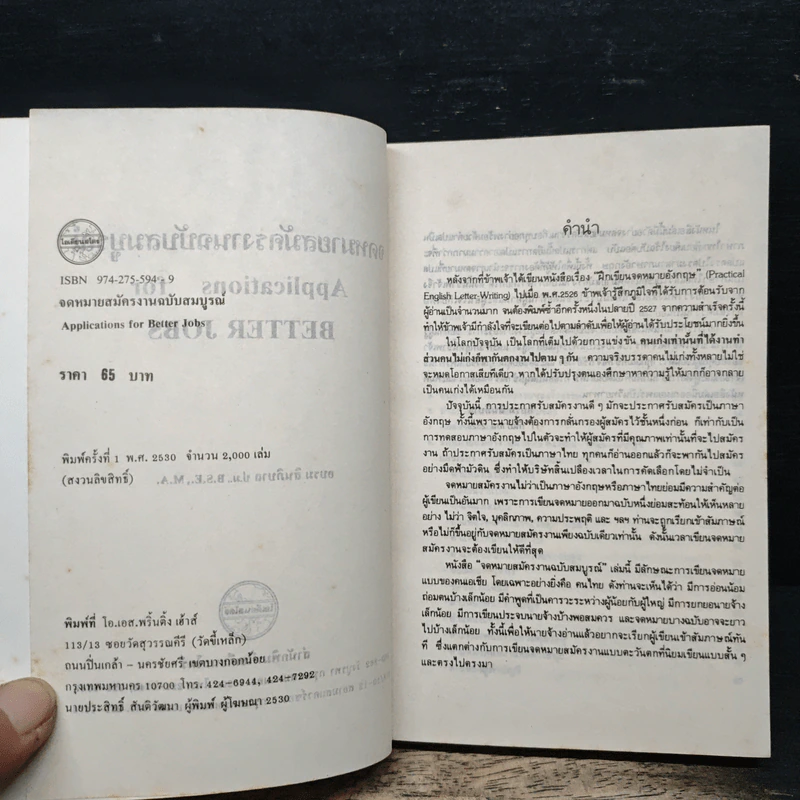 โอเดียนสโตร์
ISBN 974-275-594-9
จดหมายสมัครงานฉบับสมบูรณ์
Applications for Better Jobs
ราคา 65 บาท
พิมพ์ครั้งที่ 1 พ.ศ. 2530 จำนวน 2,000 เล่ม
(สงวนลิขสิทธิ์)
พิมพ์ที่ โอ.เอส.พริ้นติ้ง เฮ้าส์
113/13 ซอยวัดสุวรรณคีรี (วัดขี้เหล็ก)
ถนนปิ่นเกล้า - นครชัยศรี เขตบางกอกน้อย
กรุงเทพมหานคร 10700 โทร. 424-6944, 424-7292
นายประสิทธิ์ สันติวัฒนา ผู้พิมพ์ ผู้โฆษณา 2530
คำนำ
หลังจากที่ข้าพเจ้าได้เขียนหนังสือเรื่อง "ฝึกเขียนจดหมายอังกฤษ" (Practical
English Letter-Writing) ไปเมื่อ พ.ศ.2526 ข้าพเจ้ารู้สึกภูมิใจที่ได้รับการต้อนรับจาก
ผู้อ่านเป็นจำนวนมาก จนต้องพิมพ์ซ้ำอีกครั้งหนึ่งในปลายปี 2527 จากความสำเร็จครั้งนี้
ทำให้ข้าพเจ้ามีกำลังใจที่จะเขียนต่อไปตามลำดับเพื่อให้ผู้อ่านได้รับประโยชน์มากยิ่งขึ้น
ในโลกปัจจุบัน เป็นโลกที่เต็มไปด้วยการแข่งขัน คนเก่งเท่านั้นที่ได้งานทำ
ส่วนคนไม่เก่งก็พากันตกงานไปตาม ๆ กัน ความจริงบรรดาคนไม่เก่งทั้งหลายไม่ใช่
จะหมดโอกาสเสียทีเดียว หากได้ปรับปรุงตนเองศึกษาหาความรู้ให้มากก็อาจกลาย
เป็นคนเก่งได้เหมือนกัน
ปัจจุบันนี้ การประกาศรับสมัครงานดี ๆ มักจะประกาศรับสมัครเป็นภาษา
อังกฤษ ทั้งนี้เพราะนายจ้างต้องการกลั่นกรองผู้สมัครไว้ชั้นหนึ่งก่อน ก็เท่ากับเป็น
การทดสอบภาษาอังกฤษไปในตัวจะทำให้ผู้สมัครที่มีคุณภาพเท่านั้นที่จะไปสมัคร
งาน ถ้าประกาศรับสมัครเป็นภาษาไทย ทุกคนก็อ่านออกแล้วก็จะพากันไปสมัคร
อย่างมืดฟ้ามัวดิน ซึ่งทำให้บริษัทสิ้นเปลืองเวลาในการคัดเลือกโดยไม่จำเป็น
จดหมายสมัครงานไม่ว่าเป็นภาษาอังกฤษหรือภาษาไทยย่อมมีความสำคัญต่อ
ผู้เขียนเป็นอันมาก เพราะการเขียนจดหมายออกมาฉบับหนึ่งย่อมสะท้อนให้เห็นหลาย
อย่าง ไม่ว่า จิตใจ, บุคลิกภาพ, ความประพฤติ และ ฯลฯ ท่านจะถูกเรียกเข้าสัมภาษณ์
หรือไม่ก็ขึ้นอยู่กับจดหมายสมัครงานเพียงฉบับเดียวเท่านั้น ดังนั้นเวลาเขียนจดหมาย
สมัครงานจะต้องเขียนให้ดีที่สุด
หนังสือ "จดหมายสมัครงานฉบับสมบูรณ์" เล่มนี้ มีลักษณะการเขียนจดหมาย
แบบของคนเอเชีย โดยเฉพาะอย่างยิ่งคือ คนไทย ดังท่านจะเห็นได้ว่า มีการอ่อนน้อม
ถ่อมตนบ้างเล็กน้อย มีคำพูดที่เป็นคารวะระหว่างผู้น้อยกับผู้ใหญ่ มีการยกยอนายจ้าง
เล็กน้อย มีการเขียนประจบนายจ้างบ้างพอสมควร และจดหมายบางฉบับอาจจะยาว
ไปบ้างเล็กน้อย ทั้งนี้เพื่อให้นายจ้างอ่านแล้วอยากจะเรียกผู้เขียนเข้าสัมภาษณ์ทัน
ที ซึ่งแตกต่างกับการเขียนจดหมายสมัครงานแบบตะวันตกที่นิยมเขียนแบบสั้น ๆ
และตรงไปตรงมา